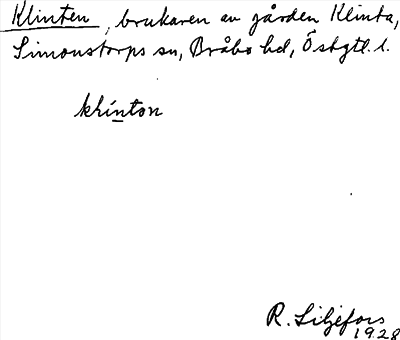 Klinten, brukaren av gården Klinta,
Simonstorps sn, Bråbo hd, Östgtl. l.
klinton
R. Liljefors
1928